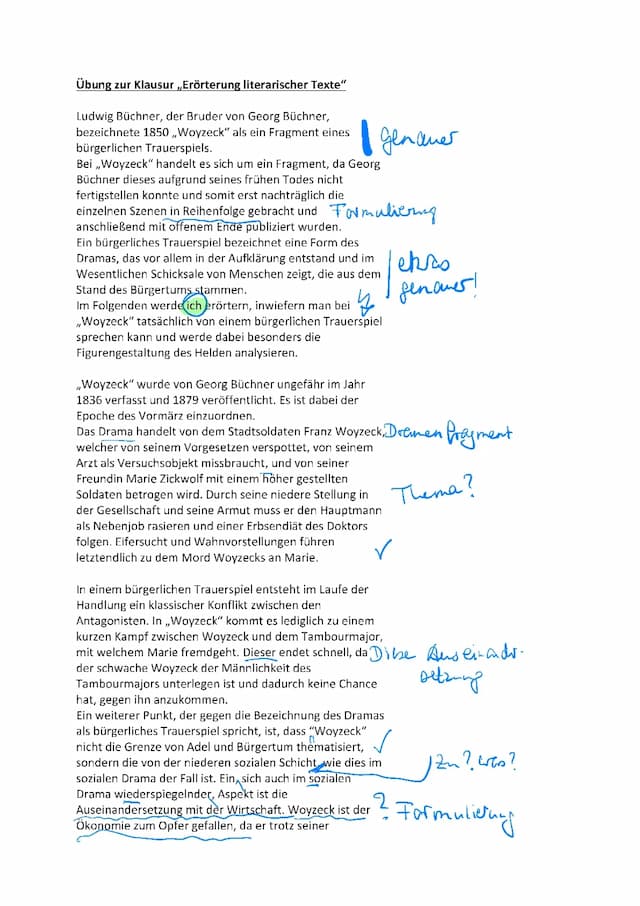 Übung zur Klausur „Erörterung literarischer Texte“
Ludwig Büchner, der Bruder von Georg Büchner,
bezeichnete 1850 „Woyzeck“ als ein Fragment eines
bürgerlichen Trauerspiels.
genauer
Bei „Woyzeck“ handelt es sich um ein Fragment, da Georg
Büchner dieses aufgrund seines frühen Todes nicht
fertigstellen konnte und somit erst nachträglich die
einzelnen Szenen in Reihenfolge gebracht und
Formulierung
anschließend mit offenem Ende publiziert wurden.
Ein bürgerliches Trauerspiel bezeichnet eine Form des
Dramas, das vor allem in der Aufklärung entstand und im
Wesentlichen Schicksale von Menschen zeigt, die aus dem
Stand des Bürgertums stammen.
etwas
genauer!
Im Folgenden werde ich erörtern, inwiefern man bei
„Woyzeck“ tatsächlich von einem bürgerlichen Trauerspiel
sprechen kann und werde dabei besonders die
Figurengestaltung des Helden analysieren.
„Woyzeck“ wurde von Georg Büchner ungefähr im Jahr
1836 verfasst und 1879 veröffentlicht. Es ist dabei der
Epoche des Vormärz einzuordnen.
Das Drama handelt von dem Stadtsoldaten Franz Woyzeck,
Dramenfragment
welcher von seinem Vorgesetzen verspottet, von seinem
Arzt als Versuchsobjekt missbraucht, und von seiner
Freundin Marie Zickwolf mit einem höher gestellten
Soldaten betrogen wird. Durch seine niedere Stellung in
Thema?
der Gesellschaft und seine Armut muss er den Hauptmann
als Nebenjob rasieren und einer Erbsendiät des Doktors
folgen. Eifersucht und Wahnvorstellungen führen
letztendlich zu dem Mord Woyzecks an Marie.
In einem bürgerlichen Trauerspiel entsteht im Laufe der
Handlung ein klassischer Konflikt zwischen den
Antagonisten. In „Woyzeck“ kommt es lediglich zu einem
kurzen Kampf zwischen Woyzeck und dem Tambourmajor,
mit welchem Marie fremdgeht. Dieser endet schnell, da
Diese Auseinander-
setzung
der schwache Woyzeck der Männlichkeit des
Tambourmajors unterlegen ist und dadurch keine Chance
hat, gegen ihn anzukommen.
Ein weiterer Punkt, der gegen die Bezeichnung des Dramas
als bürgerliches Trauerspiel spricht, ist, dass “Woyzeck“
nicht die Grenze von Adel und Bürgertum thematisiert,
sondern die von der niederen sozialen Schicht, wie dies im
Zu? was?
sozialen Drama der Fall ist. Ein, sich auch im sozialen
Drama wiederspiegelnder, Aspekt ist die
Auseinandersetzung mit der Wirtschaft. Woyzeck ist der
? Formulierung
Ökonomie zum Opfer gefallen, da er trotz seiner